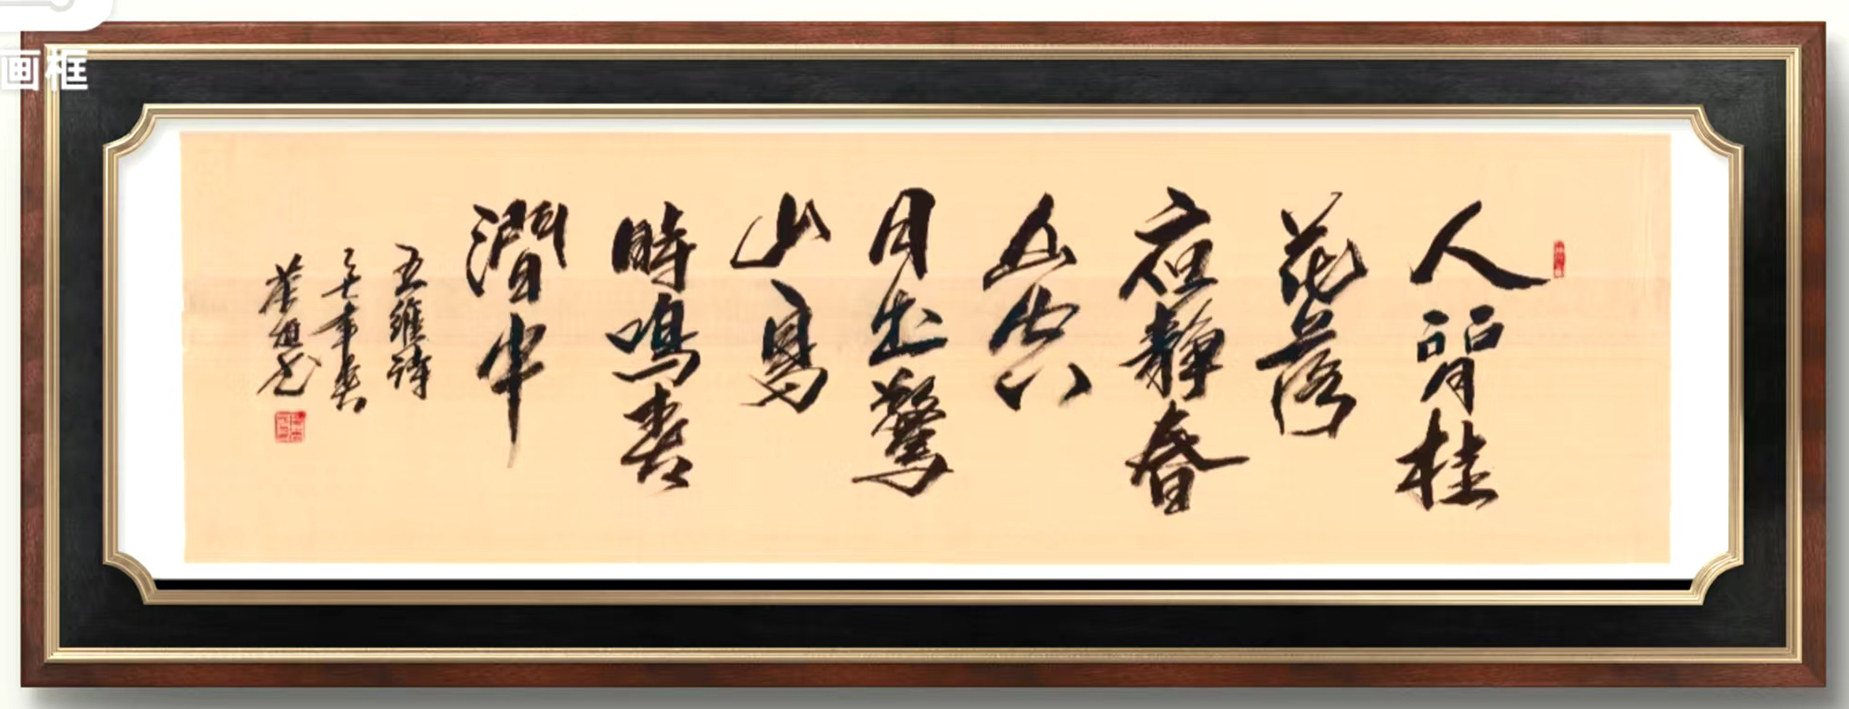 画框
人閒桂
花落
夜静春
山空
月出驚
山鳥
時鳴春
澗中
王維詩
年春